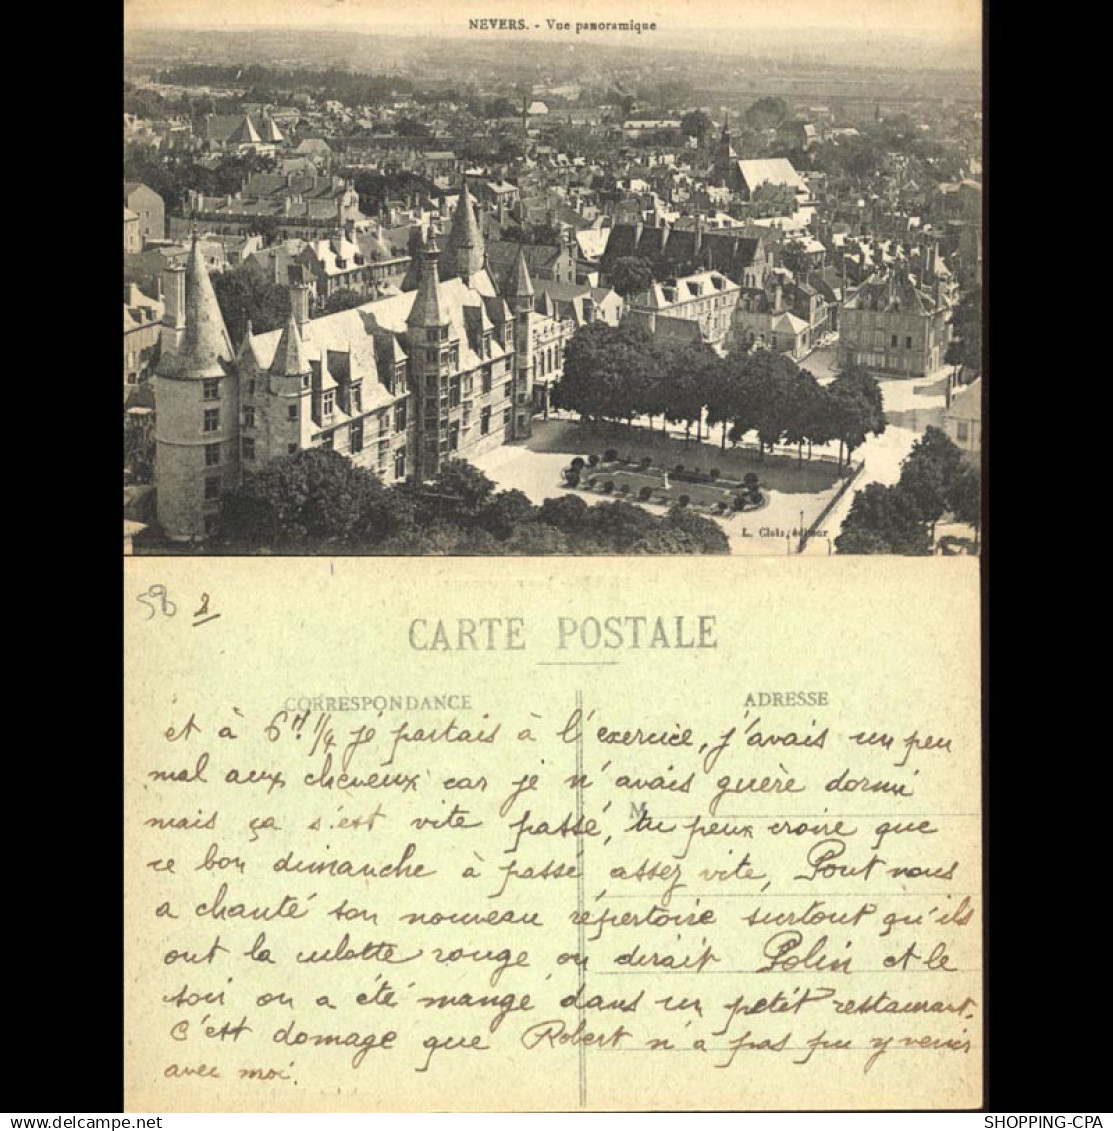 NEVERS. - Vue panoramique
L. Cloix, éditeur
58 2
CARTE POSTALE
CORRESPONDANCE
ADRESSE
M
et à 6h 1/4 je partais à l'exercice, j'avais un peu
mal aux cheveux car je n'avais guère dormi
mais ça s'est vite passé, tu peux croire que
ce bon dimanche à passé assez vite, Pout nous
a chanté son nouveau répertoire surtout qu'ils
ont la culotte rouge on dirait Polin et le
soir on a été mangé dans un petit restaurant.
C'est domage que Robert n'a pas pu y venir
avec moi.
SHOPPING-CPA